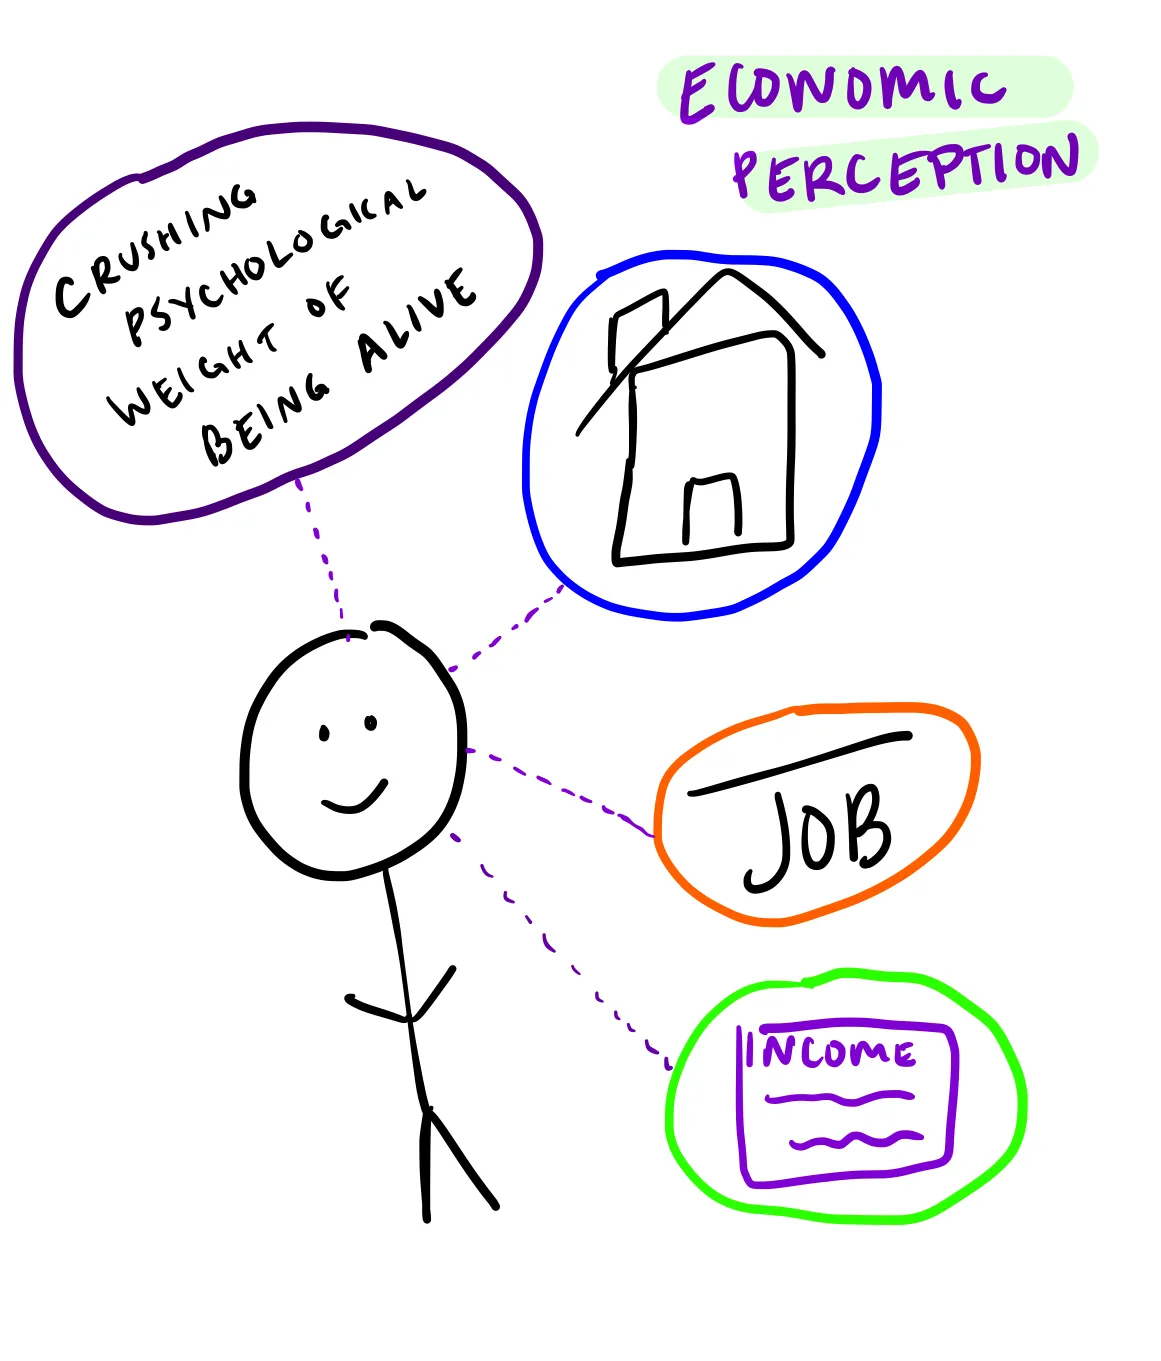 ECONOMIC
PERCEPTION
CRUSHING
PSYCHOLOGICAL
WEIGHT OF
BEING ALIVE
JOB
INCOME